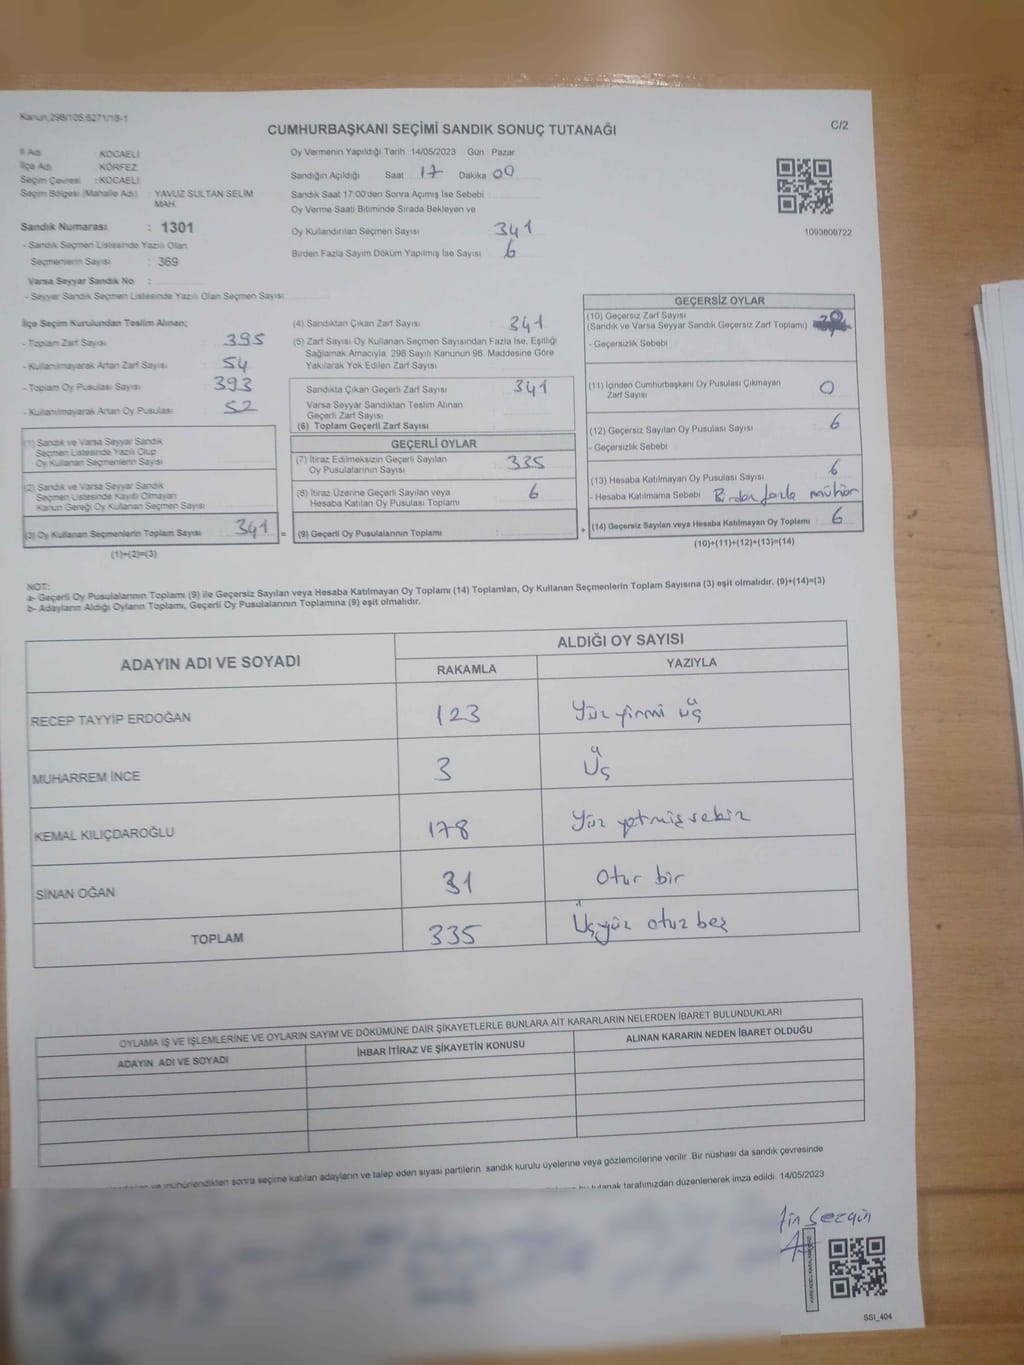 Kanun,298/105,6271/18-1
CUMHURBAŞKANI SEÇİMİ SANDIK SONUÇ TUTANAĞI
C/2
İl Adı : KOCAELİ
İlçe Adı : KÖRFEZ
Seçim Çevresi : KOCAELİ
Seçim Bölgesi (Mahalle Adı) : YAVUZ SULTAN SELİM
MAH.
Sandık Numarası : 1301
- Sandık Seçmen Listesinde Yazılı Olan
Seçmenlerin Sayısı : 369
Varsa Seyyar Sandık No :
- Seyyar Sandık Seçmen Listesinde Yazılı Olan Seçmen Sayısı
Oy Vermenin Yapıldığı Tarih 14/05/2023 Gün Pazar
Sandığın Açıldığı Saat 17 Dakika 00
Sandık Saat 17:00'den Sonra Açımış İse Sebebi
Oy Verme Saati Bitiminde Sırada Bekleyen ve
Oy Kullandırılan Seçmen Sayısı 341
Birden Fazla Sayım Döküm Yapılmış İse Sayısı 6
1093808722
İlçe Seçim Kurulundan Teslim Alınan;
- Toplam Zarf Sayısı 395
- Kullanılmayarak Artan Zarf Sayısı 54
- Toplam Oy Pusulası Sayısı 393
- Kullanılmayarak Artan Oy Pusulası 52
(1) Sandık ve Varsa Seyyar Sandık
Seçmen Listesinde Yazılı Olup
Oy Kullanan Seçmenlerin Sayısı
(2) Sandık ve Varsa Seyyar Sandık
Seçmen Listesinde Kayıtlı Olmayan
Kanun Gereği Oy Kullanan Seçmen Sayısı
(3) Oy Kullanan Seçmenlerin Toplam Sayısı 341
(1)+(2)=(3)
=
(4) Sandıktan Çıkan Zarf Sayısı 341
(5) Zarf Sayısı Oy Kullanan Seçmen Sayısından Fazla İse, Eşitliği
Sağlamak Amacıyla, 298 Sayılı Kanunun 98. Maddesine Göre
Yakılarak Yok Edilen Zarf Sayısı
Sandıkta Çıkan Geçerli Zarf Sayısı 341
Varsa Seyyar Sandıktan Teslim Alınan
Geçerli Zarf Sayısı
(6) Toplam Geçerli Zarf Sayısı
GEÇERLİ OYLAR
(7) İtiraz Edilmeksizin Geçerli Sayılan
Oy Pusulalarının Sayısı 335
(8) İtiraz Üzerine Geçerli Sayılan veya
Hesaba Katılan Oy Pusulası Toplamı 6
(9) Geçerli Oy Pusulalarının Toplamı
+
GEÇERSİZ OYLAR
(10) Geçersiz Zarf Sayısı
(Sandık ve Varsa Seyyar Sandık Geçersiz Zarf Toplamı)
- Geçersizlik Sebebi
(11) İçinden Cumhurbaşkanı Oy Pusulası Çıkmayan
Zarf Sayısı 0
(12) Geçersiz Sayılan Oy Pusulası Sayısı 6
- Geçersizlik Sebebi
(13) Hesaba Katılmayan Oy Pusulası Sayısı 6
- Hesaba Katılmama Sebebi Birden fazla mühür
(14) Geçersiz Sayılan veya Hesaba Katılmayan Oy Toplamı 6
(10)+(11)+(12)+(13)=(14)
NOT:
a- Geçerli Oy Pusulalarının Toplamı (9) ile Geçersiz Sayılan veya Hesaba Katılmayan Oy Toplamı (14) Toplamları, Oy Kullanan Seçmenlerin Toplam Sayısına (3) eşit olmalıdır. (9)+(14)=(3)
b- Adayların Aldığı Oyların Toplamı, Geçerli Oy Pusulalarının Toplamına (9) eşit olmalıdır.
ADAYIN ADI VE SOYADI
ALDIĞI OY SAYISI
RAKAMLA YAZIYLA
RECEP TAYYİP ERDOĞAN 123 Yüz yirmi üç
MUHARREM İNCE 3 Üç
KEMAL KILIÇDAROĞLU 178 Yüz yetmiş sekiz
SİNAN OĞAN 31 Otuz bir
TOPLAM 335 Üçyüz otuz beş
OYLAMA İŞ VE İŞLEMLERİNE VE OYLARIN SAYIM VE DÖKÜMÜNE DAİR ŞİKAYETLERLE BUNLARA AİT KARARLARIN NELERDEN İBARET BULUNDUKLARI
ADAYIN ADI VE SOYADI
İHBAR İTİRAZ VE ŞİKAYETİN KONUSU
ALINAN KARARIN NEDEN İBARET OLDUĞU
ve mühürlendikten sonra seçime katılan adayların ve talep eden siyasi partilerin sandık kurulu üyelerine veya gözlemcilerine verilir. Bir nüshası da sandık çevresinde
bu tutanak tarafımızdan düzenlenerek imza edildi. 14/05/2023
Sezgin
SSI_404